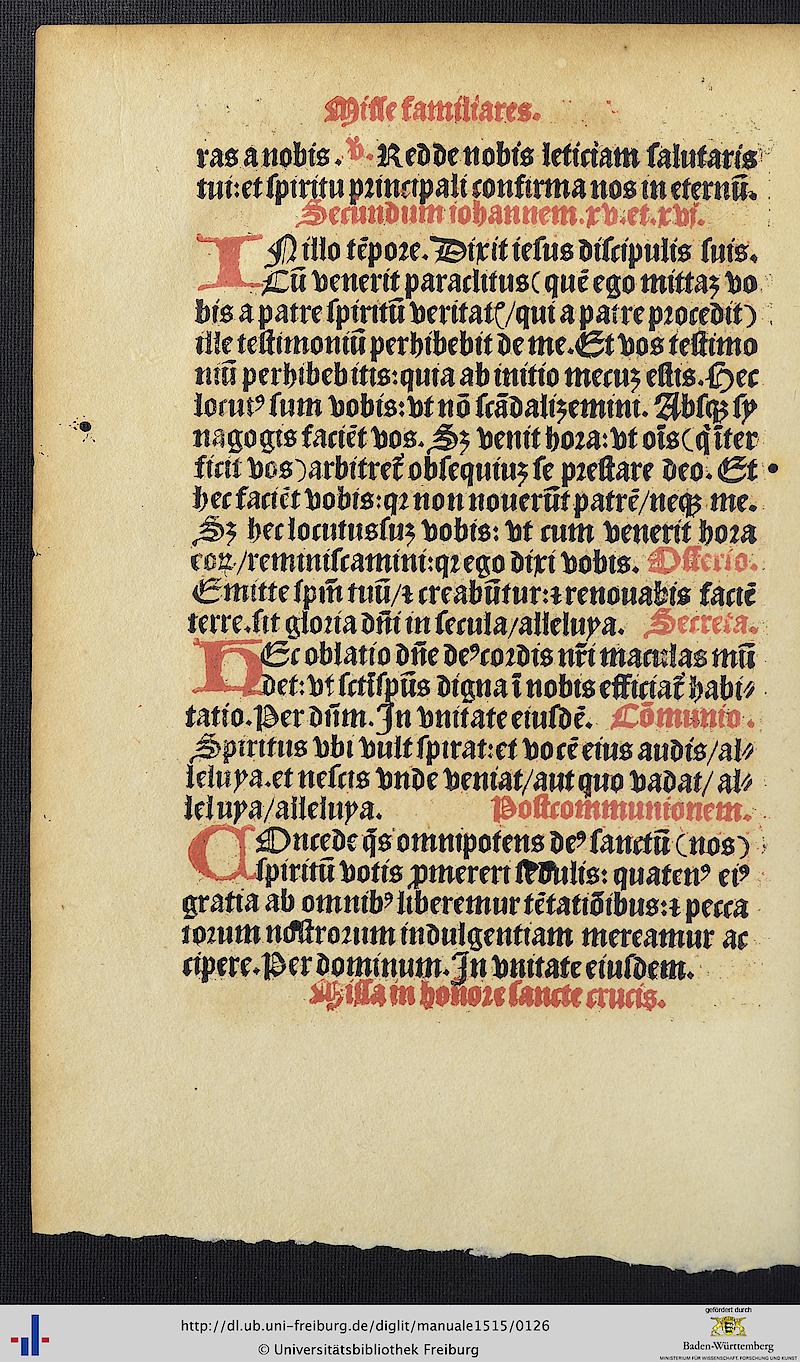 Misse familiares.
ras a nobis. V. Redde nobis leticiam salutaris
tui:et spiritu principali confirma nos in eternū.
Secundum iohannem.xv.et.xvi.
IN illo tēpore. Dixit iesus discipulis suis.
Cū venerit paraclitus(quē ego mittaꝫ vo
bis a patre spiritū veritatꝭ/qui a patre procedit)
ille testimoniū perhibebit de me.Et vos testimo
niū perhibebitis:quia ab initio mecuꝫ estis.Hec
locutꝰ sum vobis:vt nō scādalizemini. Absqꝫ sy
nagogis faciēt vos. Sꝫ venit hora:vt oīs(q̇ īter
ficit vos)arbitret᷑ obsequiuꝫ se prestare deo. Et
hec faciēt vobis:qꝛ non nouerūt patrē/neqꝫ me.
Sꝫ hec locutus suꝫ vobis: vt cum venerit hora
eoꝝ/reminiscamini:qꝛ ego dixi vobis. Offerto.
Emitte spm̄ tuū/⁊ creabūtur:⁊ renouabis faciē
terre.sit gloria dn̄i in secula/alleluya. Secreta.
HEc oblatio dn̄e deꝰ cordis nr̄i maculas mū
det: vt sctūspūs digna ī nobis efficiat᷑ habi⸗
tatio.Per dn̄m. In vnitate eiusdē. Cōmunio.
Spiritus vbi vult spirat:et vocē eius audis/al⸗
leluya.et nescis vnde veniat/aut quo vadat/ al⸗
leluya/alleluya. Postcommunionem.
COncede q̄s omnipotens deꝰ sanctū (nos)
spiritū votis ꝓmereri sedulis: quatenꝰ eiꝰ
gratia ab omnibꝰ liberemur tētatiōibus:⁊ pecca
torum nostrorum indulgentiam mereamur ac
cipere.Per dominum.In vnitate eiusdem.
Missa in honore sancte crucis.
http://dl.ub.uni-freiburg.de/diglit/manuale1515/0126
© Universitätsbibliothek Freiburg
gefördert durch
Baden-Württemberg
MINISTERIUM FÜR WISSENSCHAFT, FORSCHUNG UND KUNST